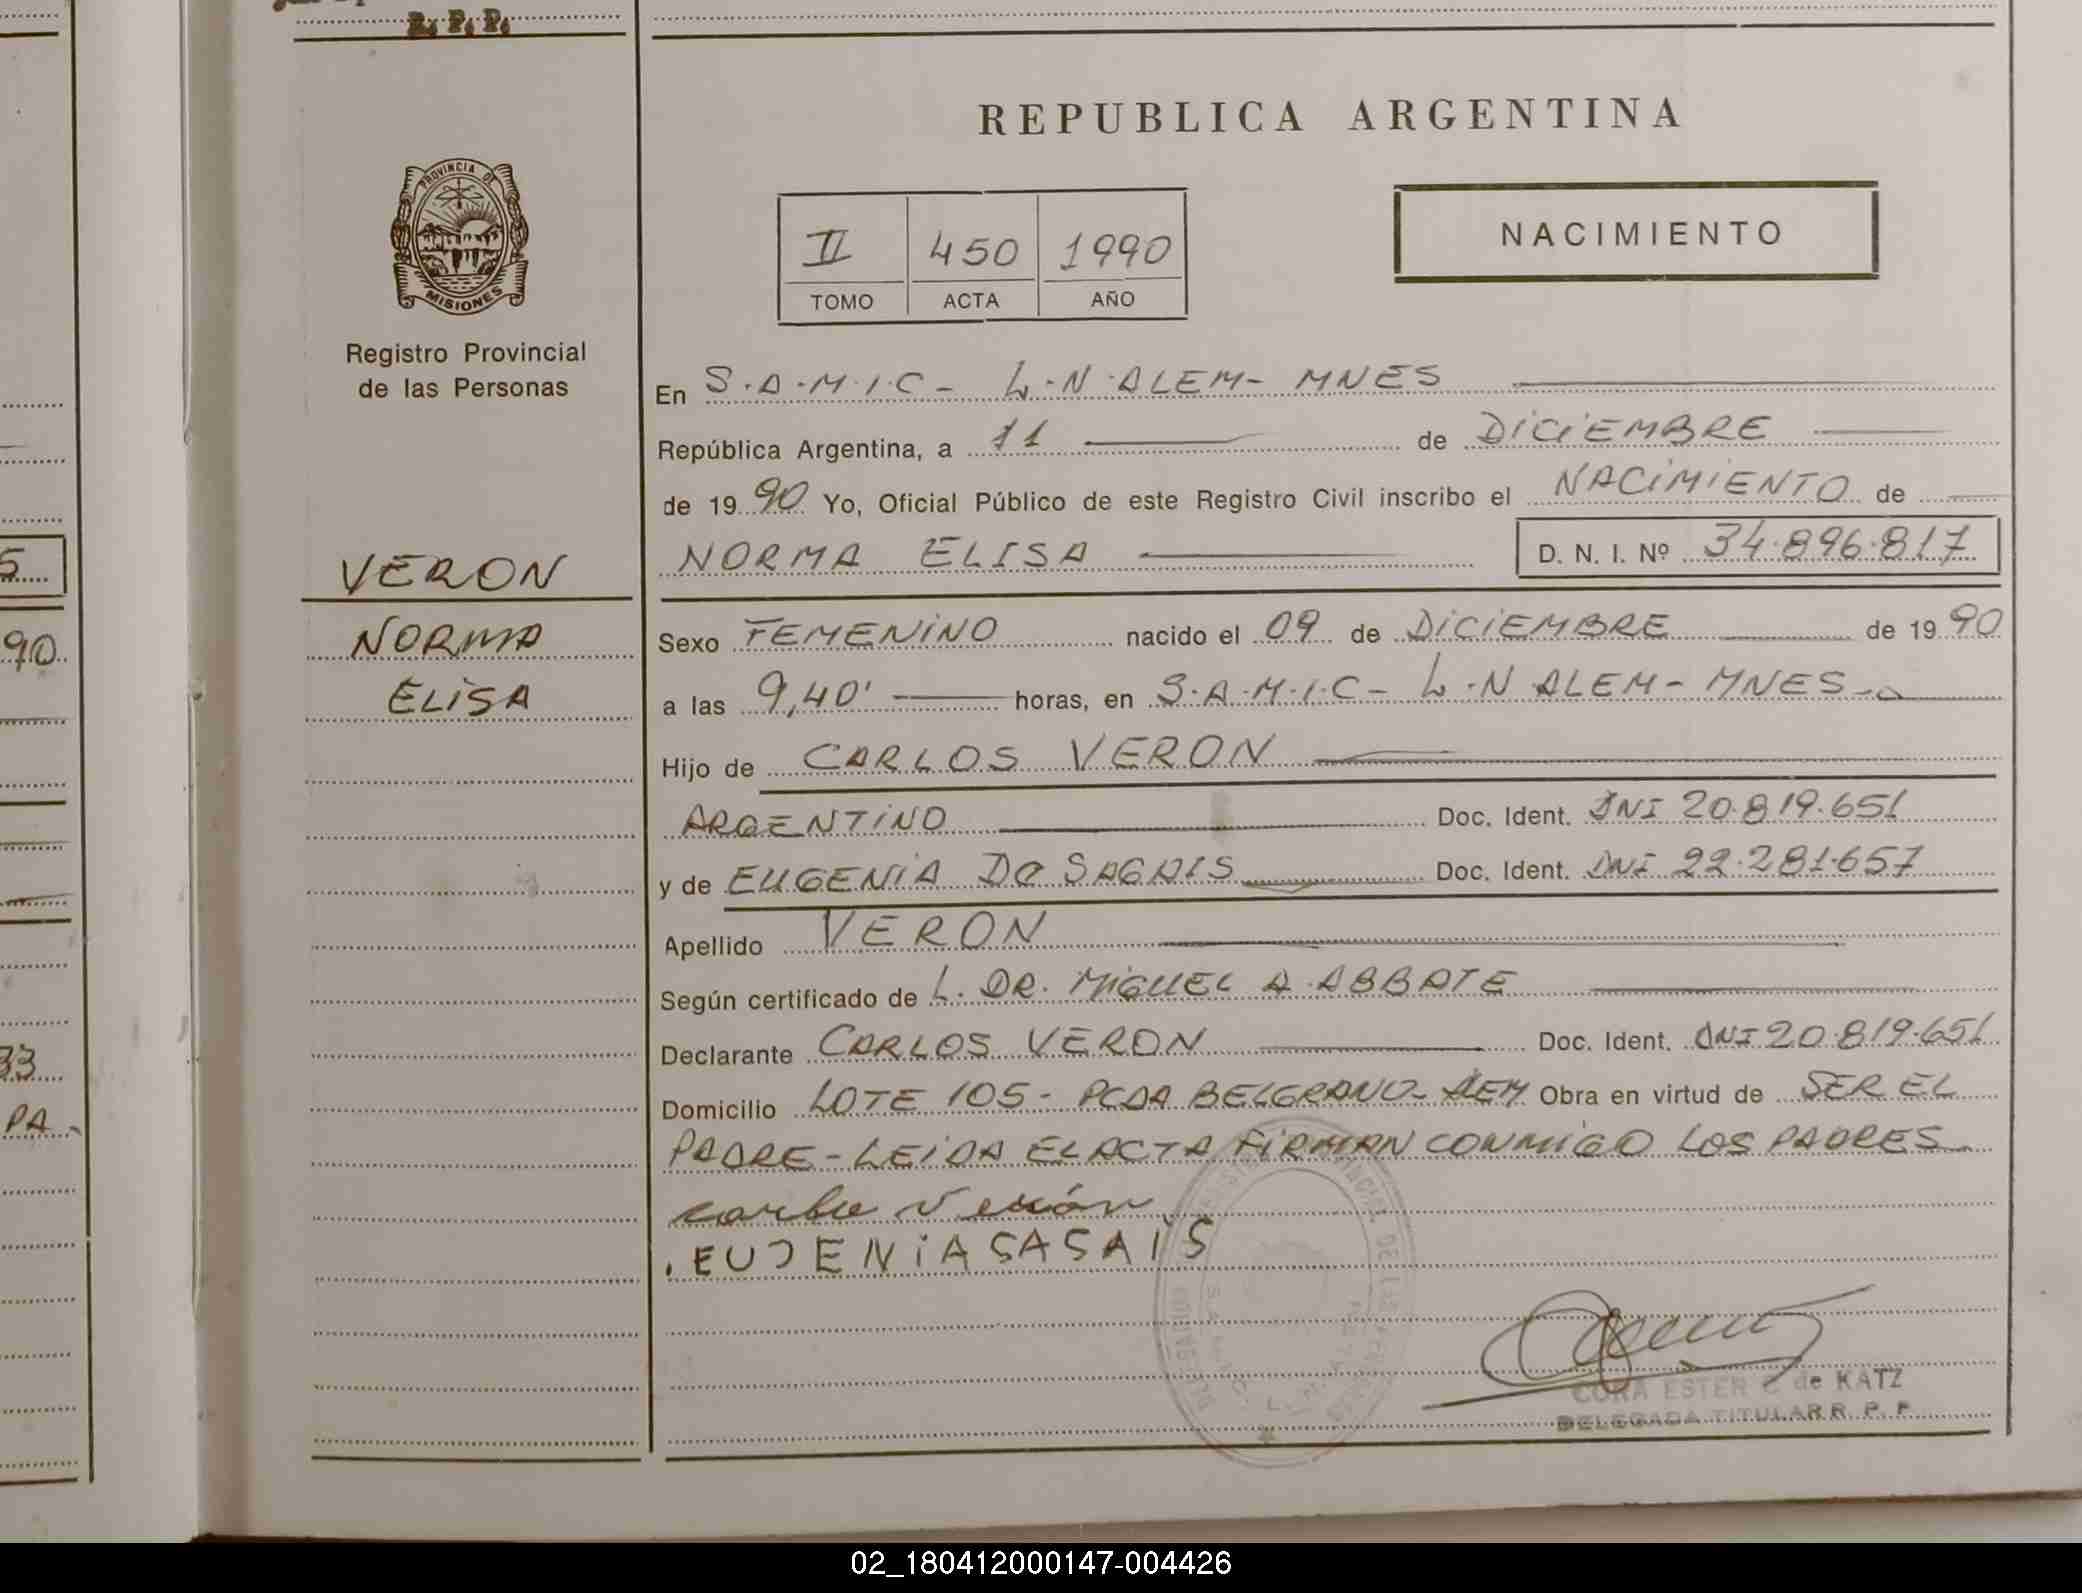 R. P. P.
REPUBLICA ARGENTINA
PROVINCIA DE
MISIONES
Registro Provincial
de las Personas
II 450 1990
TOMO ACTA AÑO
NACIMIENTO
En S.A.M.I.C- L.N.ALEM- MNES
República Argentina, a 11 de DICIEMBRE
de 1990 Yo, Oficial Público de este Registro Civil inscribo el NACIMIENTO de
NORMA ELISA D. N. I. Nº 34.896.817
VERON
NORMA
ELISA
Sexo FEMENINO nacido el 09 de DICIEMBRE de 1990
a las 9,40' horas, en S.A.M.I.C- L.N ALEM- MNES-
Hijo de CARLOS VERON
ARGENTINO Doc. Ident. DNI 20.819.651
y de EUGENIA DA SAGAIS Doc. Ident. DNI 22.281.657
Apellido VERON
Según certificado de L. DR. MIGUEL A. ABBATE
Declarante CARLOS VERON Doc. Ident. DNI 20.819.651
Domicilio LOTE 105- PCDA BELGRANO- ALEM Obra en virtud de SER EL
PADRE- LEIDA EL ACTA FIRMAN CONMIGO LOS PADRES
Verón
EUJENIA SASAIS
CORA ESTER C de KATZ
DELEGADA TITULAR R. P. P.
5
90
33
PA
02_180412000147-004426